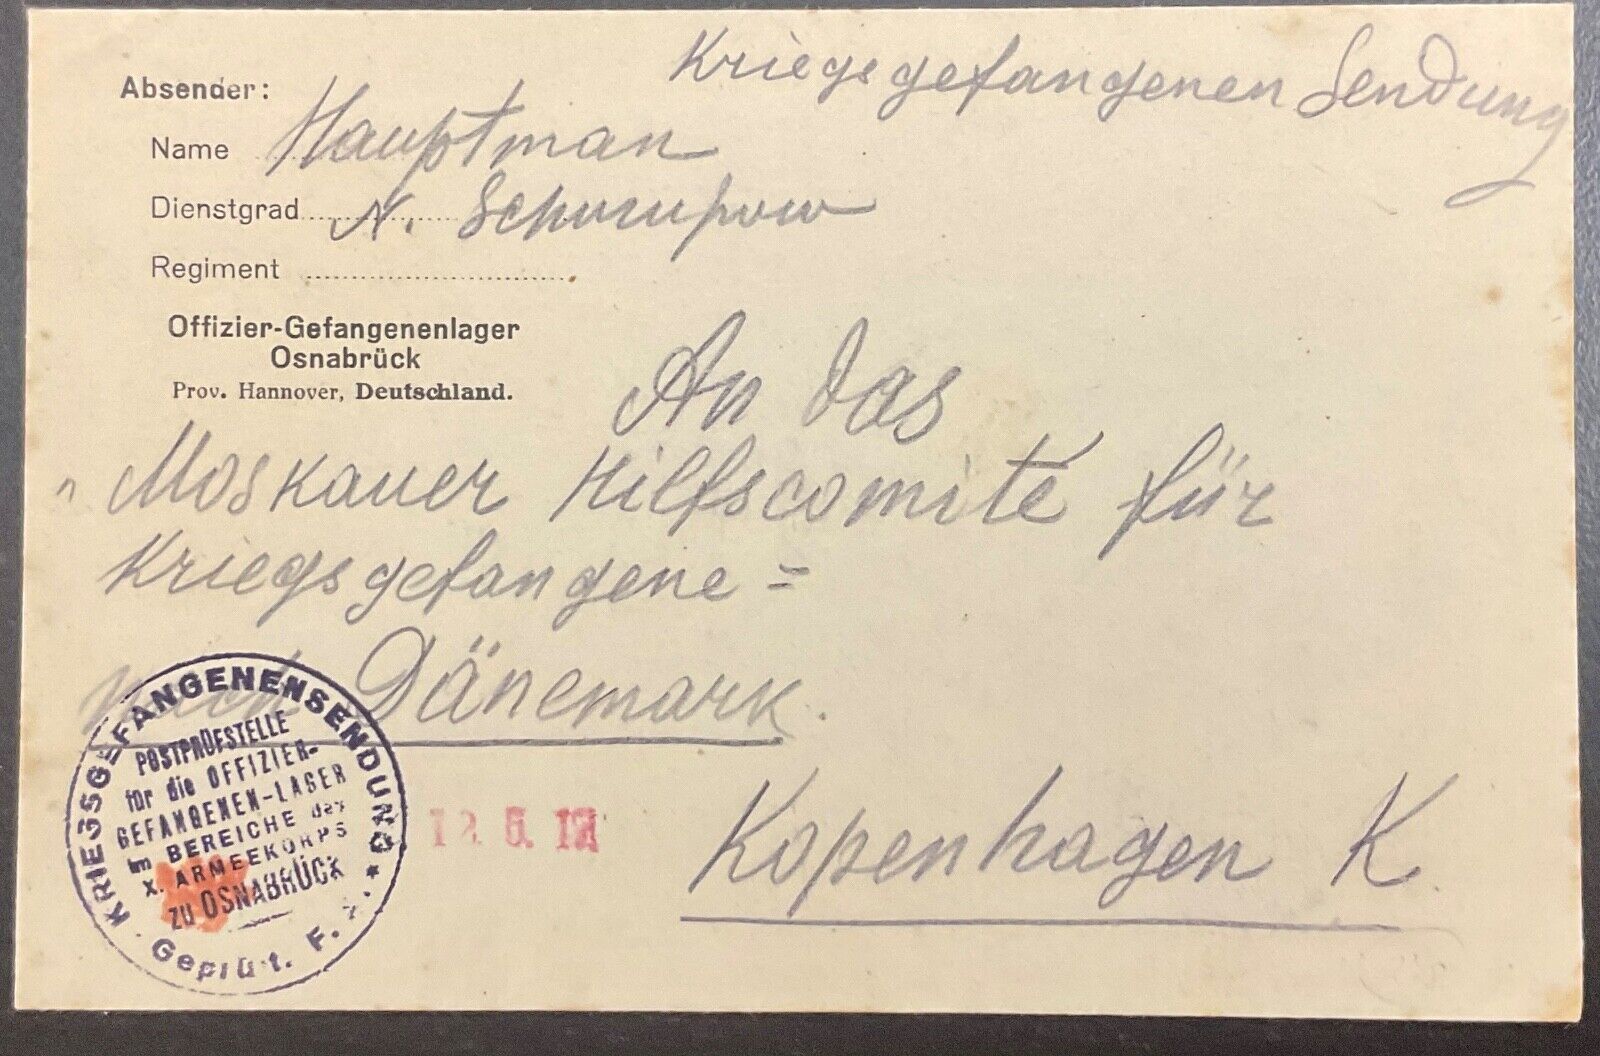 Kriegsgefangenen Sendung
Absender:
Name Hauptman
Dienstgrad N. Schurupow
Regiment
Offizier-Gefangenenlager
Osnabrück
Prov. Hannover, Deutschland.
An das
" Moskauer Hilfscomite für
Kriegsgefangene =
nach Dänemark.
Kopenhagen K.
KRIEGSGEFANGENENSENDUNG
POSTPRÜFSTELLE
für die OFFIZIER-
GEFANGENEN-LAGER
im BEREICHE des
X. ARMEEKORPS
ZU OSNABRÜCK
Geprüft. F. a.